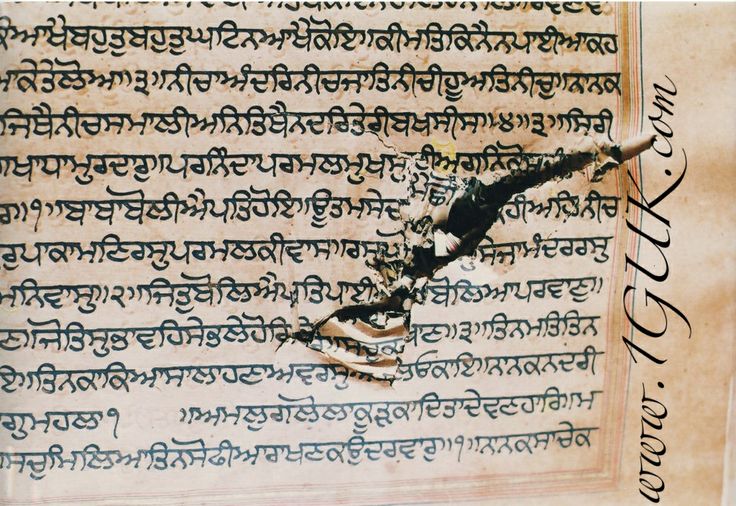 ਕੀਆਖੈਬਹੁਤੁਬਹੁਤੁਘਟਿਨਆਖੈਕੋਇ॥ਕੀਮਤਿਕਿਨੈਨਪਾਈਆਕਹ
ਆਕੇਤੇਲੋਅ॥੩॥ਨੀਚਾਅੰਦਰਿਨੀਚਜਾਤਿਨੀਚੀਹੂਅਤਿਨੀਚੁ॥ਨਾਨਕ
ਜਿਥੈਨੀਚਸਮਾਲੀਅਨਿਤਿਥੈਨਦਰਿਤੇਰੀਬਖਸੀਸ॥੪॥੩॥ਸਿਰੀ
ਖਾਧਾਮੁਰਦਾਰੁ॥ਪਰਨਿੰਦਾਪਰਮਲੁਮੁਖਸੁ
ਰਾ॥੧॥ਬਾਬਾਬੋਲੀਐਪਤਿਹੋਇ॥ਊਤਮਸੇਦ ਹੀਅਹਿਨੀਚ
ਰੁਪਾਕਾਮਣਿਰਸੁਪਰਮਲਕੀਵਾਸ॥ਰਸੁਘੋ ਸੁਸੇਜਾਮੰਦਰਰਸੁ
ਮਨਿਵਾਸੁ॥੨॥ਜਿਤੁਬੋਲਿਐਪਤਿਪਾਈ ਬੋਲਿਆਪਰਵਾਣੁ॥
ਣਾਜੋਤਿਸੁਭਾਵਹਿਸੇਭਲੇਹੋਰਿ ਣ॥੩॥ਤਿਨਮਤਿਤਿਨ
ਇ॥ਤਿਨਕਾਕਿਆਸਾਲਾਹਣਾਅਵਰਸੁ ਕਾਇ॥ਨਾਨਕਨਦਰੀ
ਗੁਮਹਲਾ੧ ॥ਅਮਲੁਗਲੋਲਾਕੂੜਕਾਦਿਤਾਦੇਵਣਹਾਰਿ॥ਮ
ਸਚੁਮਿਲਿਆਤਿਨਸੋਫੀਆਰਾਖਣਕਉਦਰਵਾਰੁ॥੧॥ਨਾਨਕਸਾਚੇਕ
www.1GUK.com